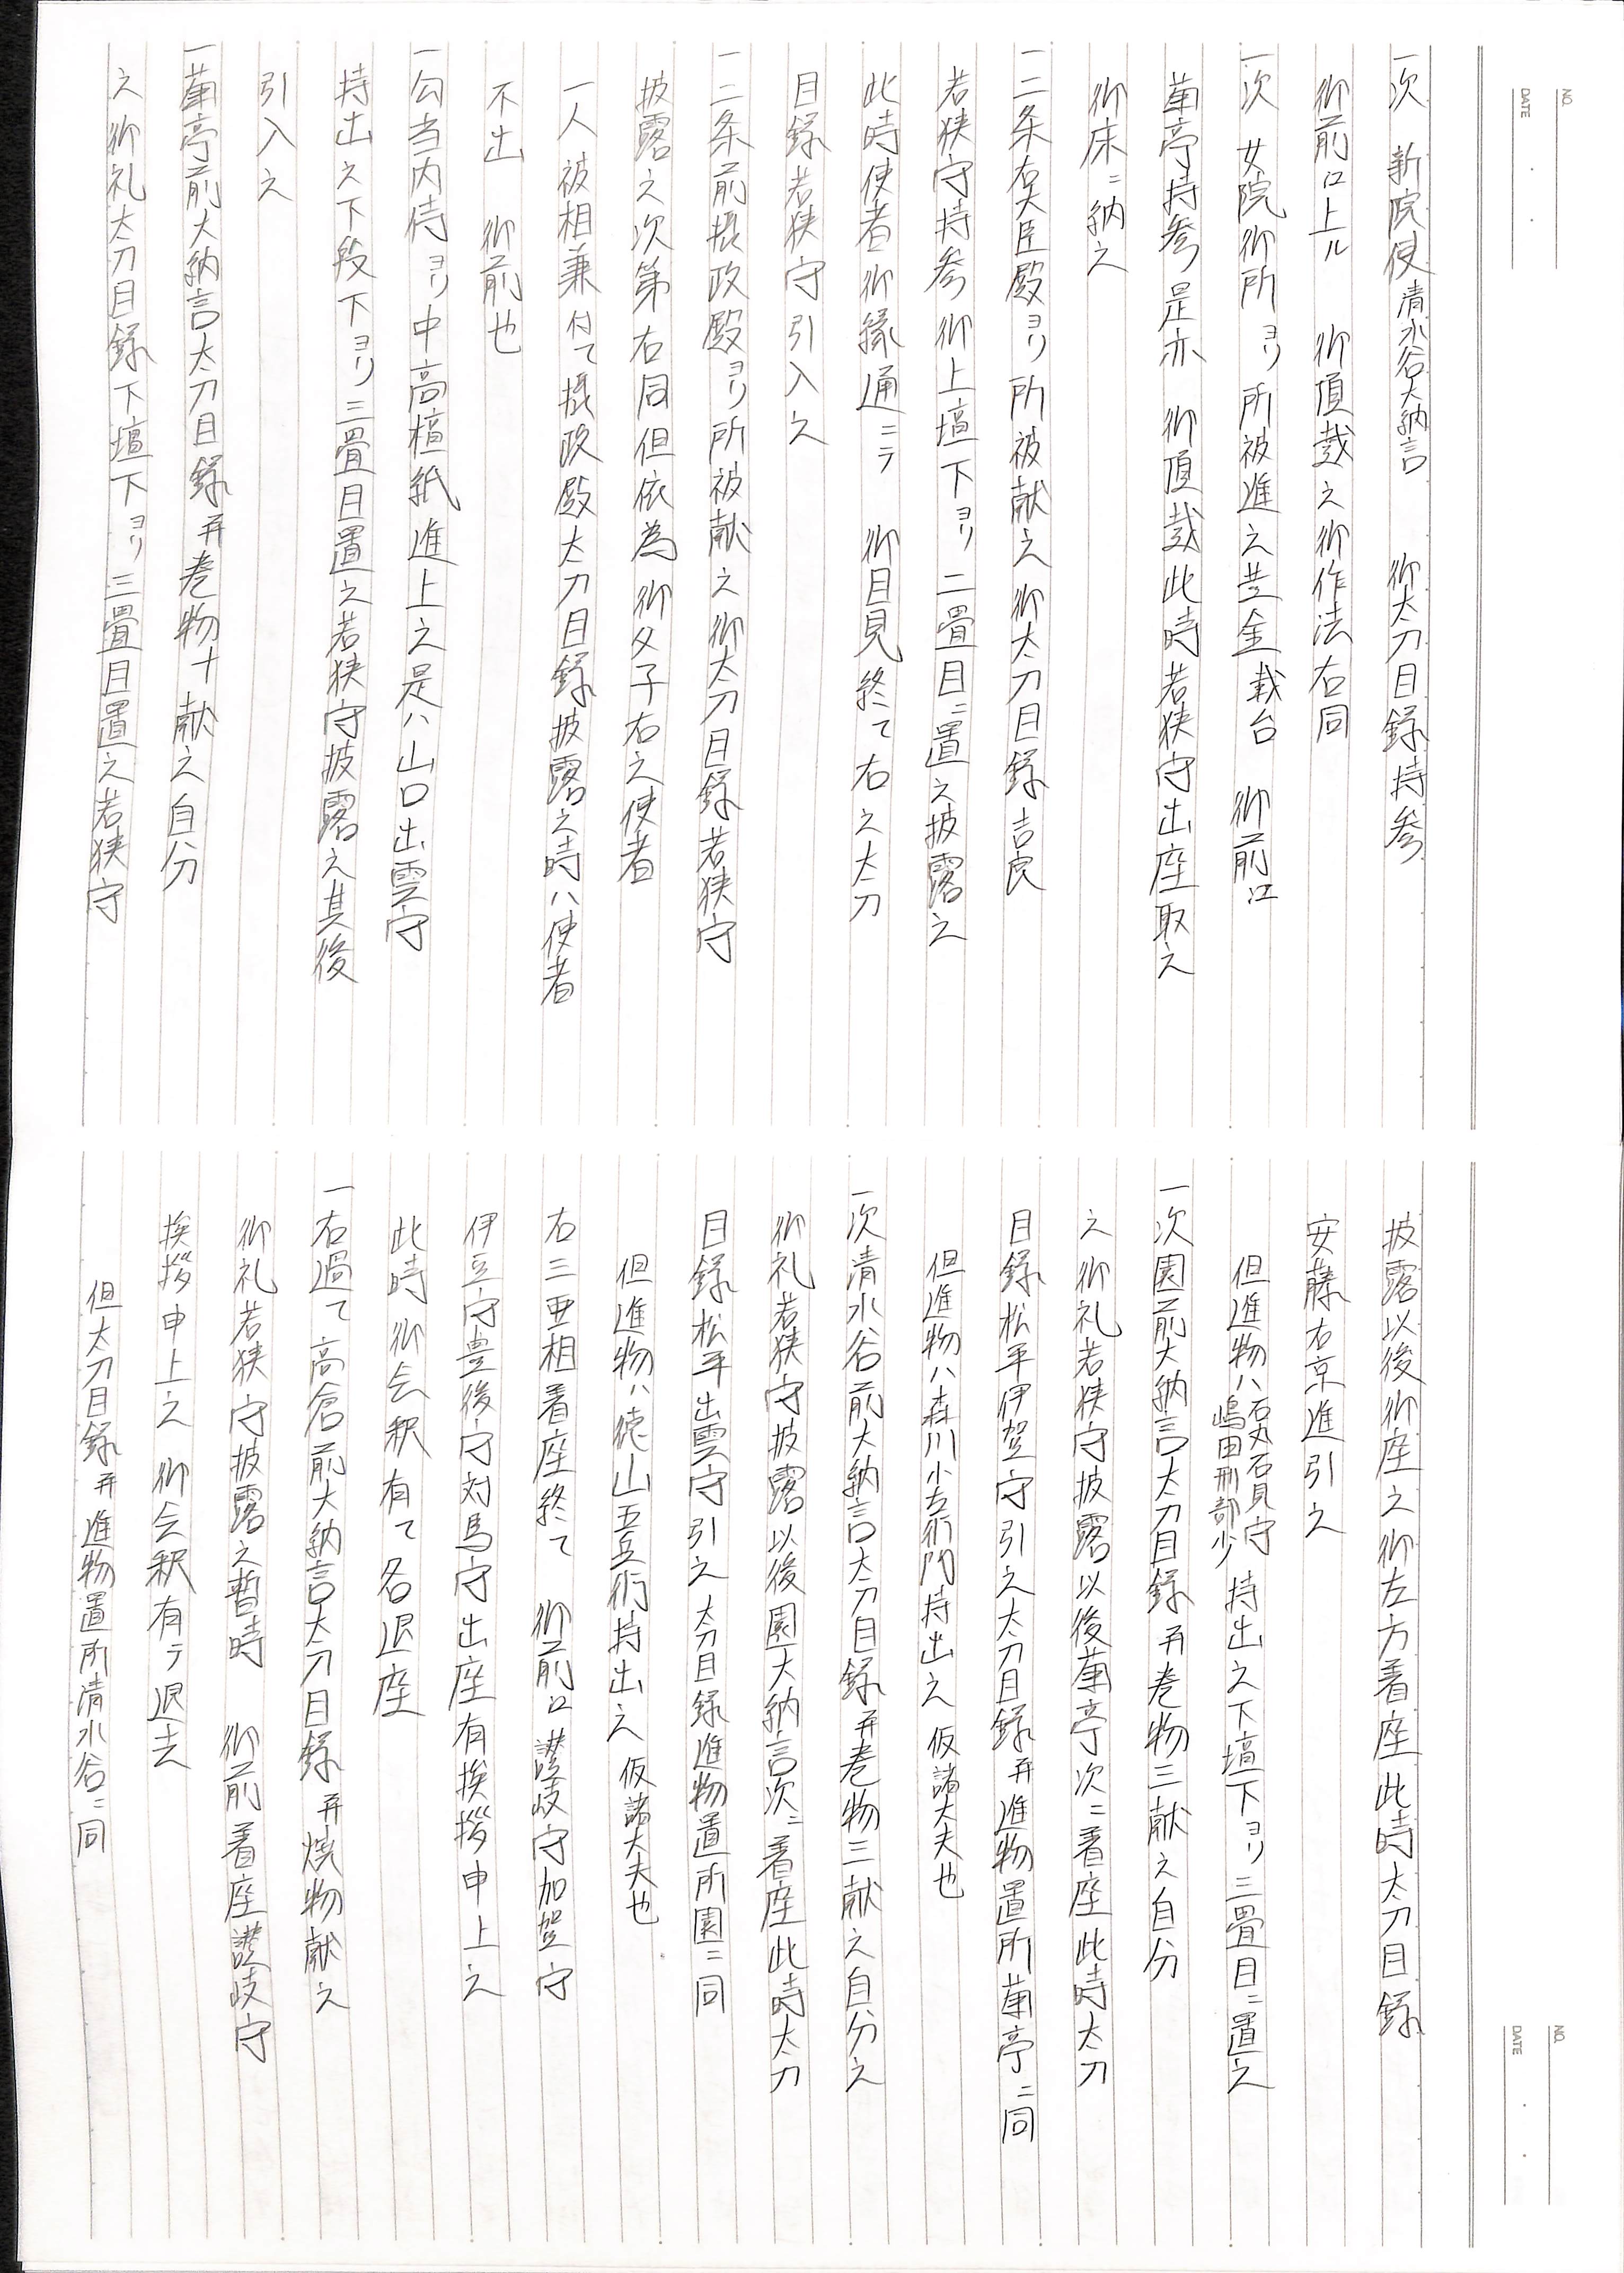 NO.
DATE
一次　新院使清水谷大納言　御太刀目録持参
御前江上ル　御頂戴之御作法右同
一次　女院御所ヨリ所被進之芸金載台　御前江
菊亭持参是亦　御頂戴此時若狭守出座取之
御床ニ納之
一二条右大臣殿ヨリ所被献之御太刀目録吉良
若狭守持参御上壇下ヨリ二畳目ニ置之披露之
此時使者御縁通ニテ　御目見終て右之太刀
目録若狭守引入之
一二条前摂政殿ヨリ所被献之御太刀目録若狭守
披露之次第右同但依為御父子右之使者
一人被相兼付て摂政殿太刀目録披露之時ハ使者
不出　御前也
一勾当内侍ヨリ中高檀紙進上之是ハ山口出雲守
持出之下段下ヨリ三畳目置之若狭守披露之其後
引入之
一菊亭前大納言太刀目録并巻物十献之自分
之御礼太刀目録下壇下ヨリ三畳目置之若狭守
NO.
DATE
披露以後御座之御左方着座此時太刀目録
安藤右京進引之
但進物ハ石丸石見守嶋田刑部少持出之下壇下ヨリ三畳目ニ置之
一次園前大納言太刀目録并巻物三献之自分
之御礼若狭守披露以後菊亭次ニ着座此時太刀
目録松平伊賀守引之太刀目録并進物置所菊亭ニ同
但進物ハ森川小左衛門持出之仮諸大夫也
一次清水谷前大納言太刀目録并巻物三献之自分之
御礼若狭守披露以後園大納言次ニ着座此時太刀
目録松平出雲守引之太刀目録進物置所園ニ同
但進物ハ徳山五兵衛持出之仮諸大夫也
右三亜相着座終て　御前江讃岐守加賀守
伊豆守豊後守対馬守出座有挨拶申上之
此時御会釈有て各退座
一右過て高倉前大納言太刀目録并焼物献之
御礼若狭守披露之暫時　御前着座讃岐守
挨拶申上之御会釈有テ退去
但太刀目録并進物置所清水谷ニ同